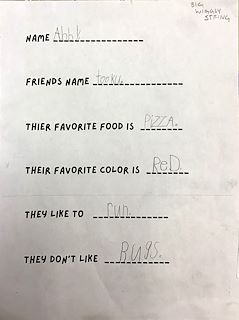 BIG
WIGGLY
STRING
NAME Abby
FRIENDS NAME tooku.
THIER FAVORITE FOOD IS PIZZA.
THEIR FAVORITE COLOR IS ReD
THEY LIKE TO run.
THEY DON'T LIKE Bugs.